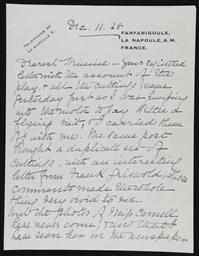 TELEPHONE Nº
LA NAPOULE 2.
Dec. 11. 28
FANFARIGOULE,
LA NAPOULE, A.M.
FRANCE.
Dearest Minnie – Your registered
letter with the account of the
play & all the cuttings, came
yesterday just as I was jumping
into the motor to pay
flying visit, & I carried them
off with me. The same post
brought a duplicate set of
cuttings, with an interesting
letter from Frank
comments made the whole
thing very vivid to me.
Only the photos of Miss Cornell
have never come, & now that I
have seen her in the newspaper